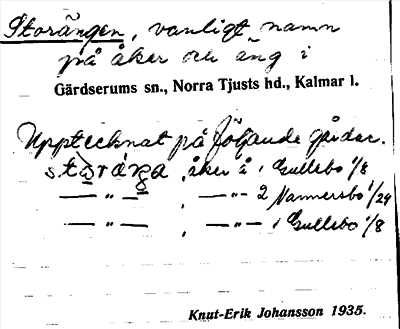 Storängen, vanligt namn
på åker och äng i
Gärdserums sn., Norra Tjusts hd., Kalmar l.
Upptecknat på följande gårdar.
åker å 1 Gullebo 1/8
— " — , — " — 2 Nannersbo 1/24
— " — , — " — 1 Gullebo 1/8
Knut-Erik Johansson 1935.